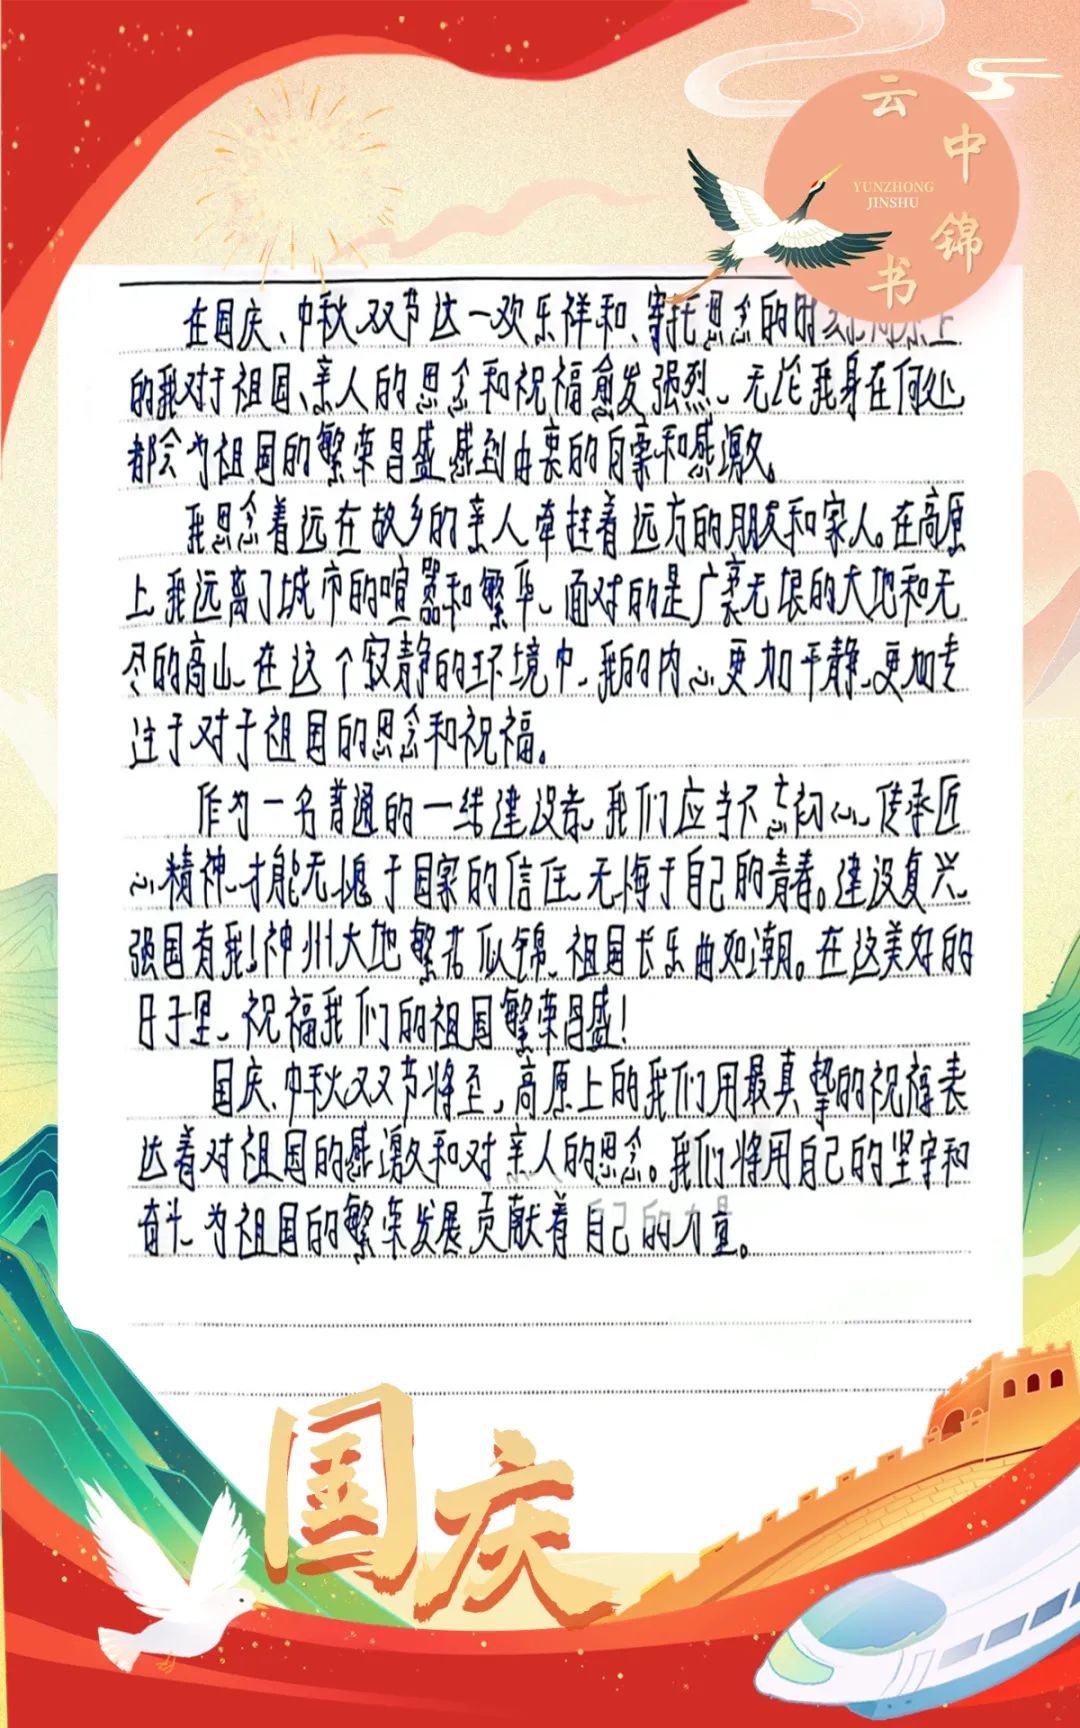 云中锦书
YUNZHONG
JINSHU
在国庆、中秋双节这一欢乐祥和、寄托思念的时刻,高原上
的我对于祖国、亲人的思念和祝福愈发强烈、无论我身在何处
都会为祖国的繁荣昌盛感到由衷的自豪和感激。
我思念着远在故乡的亲人牵挂着远方的朋友和家人。在高原
上、我远离了城市的喧嚣和繁华、面对的是广袤无垠的大地和无
尽的高山、在这个寂静的环境中、我的内心更加平静、更加专
注于对于祖国的思念和祝福。
作为一名普通的一线建设者、我们应当不忘初心、传承匠
心精神、才能无愧于国家的信任、无悔于自己的青春。建设复兴、
强国有我!神州大地繁花似锦、祖国长乐曲如潮。在这美好的
日子里、祝福我们的祖国繁荣昌盛!
国庆、中秋双节将至,高原上的我们用最真挚的祝福表
达着对祖国的感激和对亲人的思念。我们将用自己的坚守和
奋斗、为祖国的繁荣发展贡献着自己的力量。
国庆